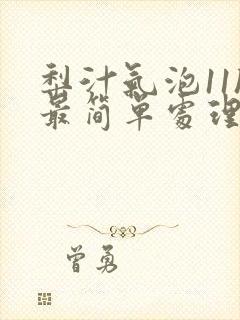 梨汁氣泡11
最简單處理
曾勇